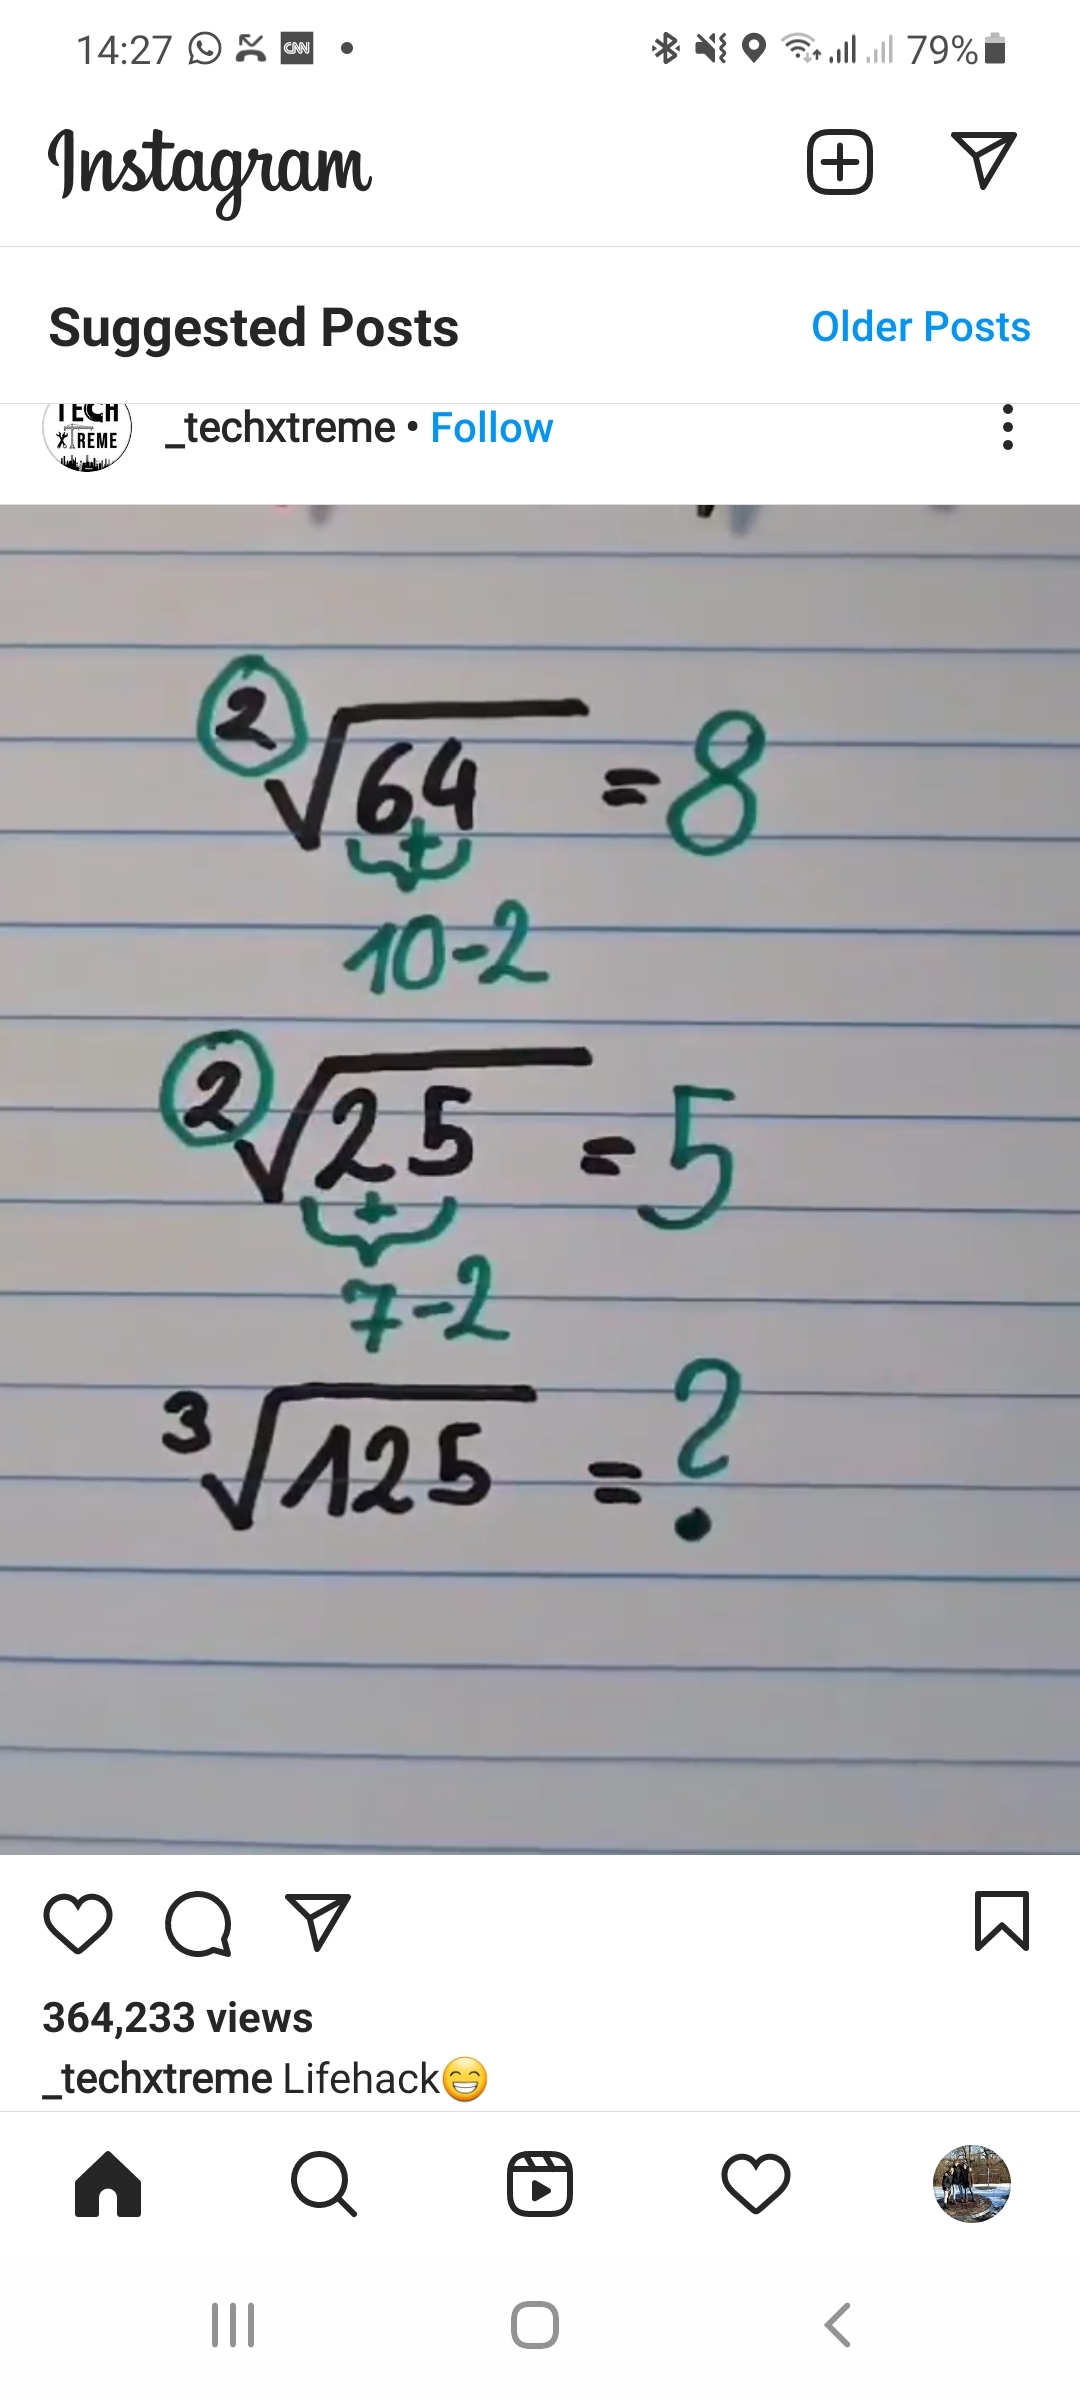 14:27 CNN 79%
Instagram
Suggested Posts Older Posts
TECH
XTREME
_techxtreme • Follow
2√64 = 8
+
10-2
2√25 = 5
+
7-2
3√125 = ?
364,233 views
_techxtreme Lifehack😁